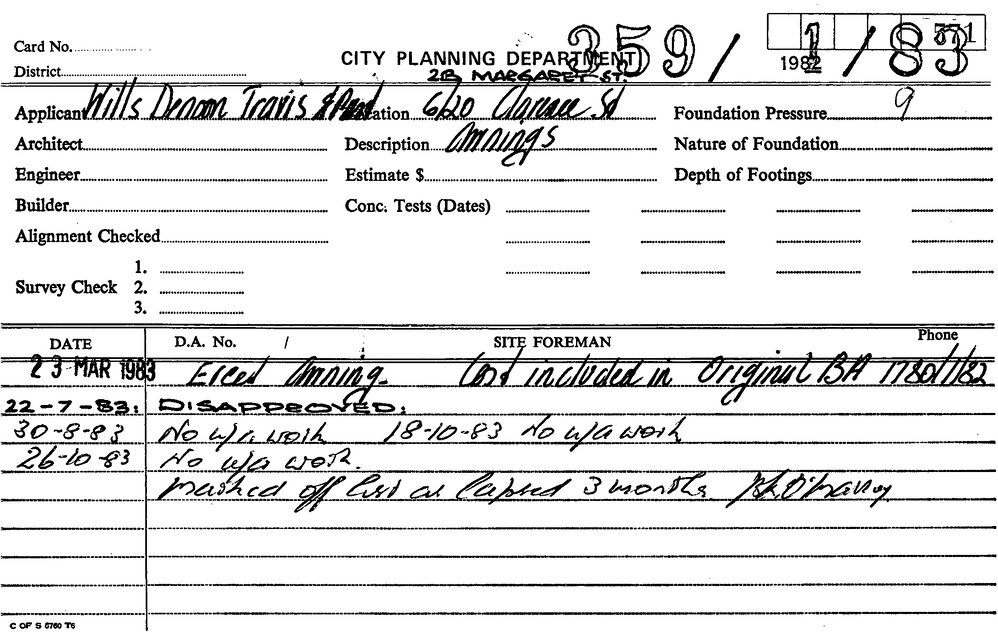 Card No.
CITY PLANNING DEPARTMENT
359/1/83
571
1982
District
2B MARGARET ST.
Applicant Wills Denoon Travis & Location 6/20 Clarence St Foundation Pressure 9
Architect Description Awnings Nature of Foundation
Engineer Estimate $ Depth of Footings
Builder Conc. Tests (Dates)
Alignment Checked
1.
Survey Check 2.
3.
DATE D.A. No. / SITE FOREMAN Phone
23 MAR 1983 Erect Awning. Cost included in Original BA 1780/1/82
22-7-83: DISAPPROVED:
30-8-83 No u/a work 18-10-83 No u/a work
26-10-83 No u/a work.
Marked off list as lapsed 3 months
C OF S 5760 T6